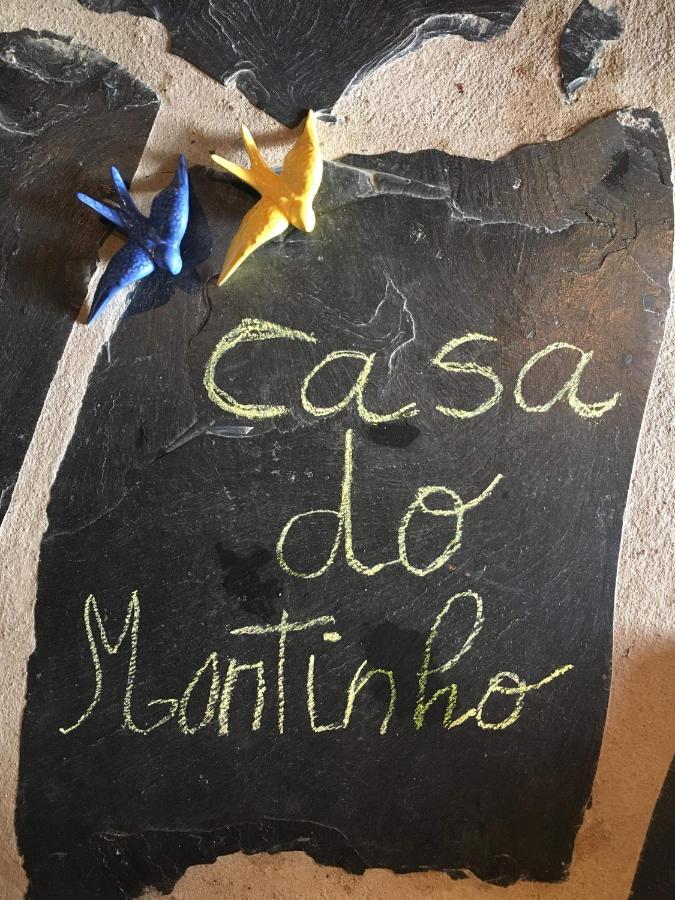 casa
do
Martinho